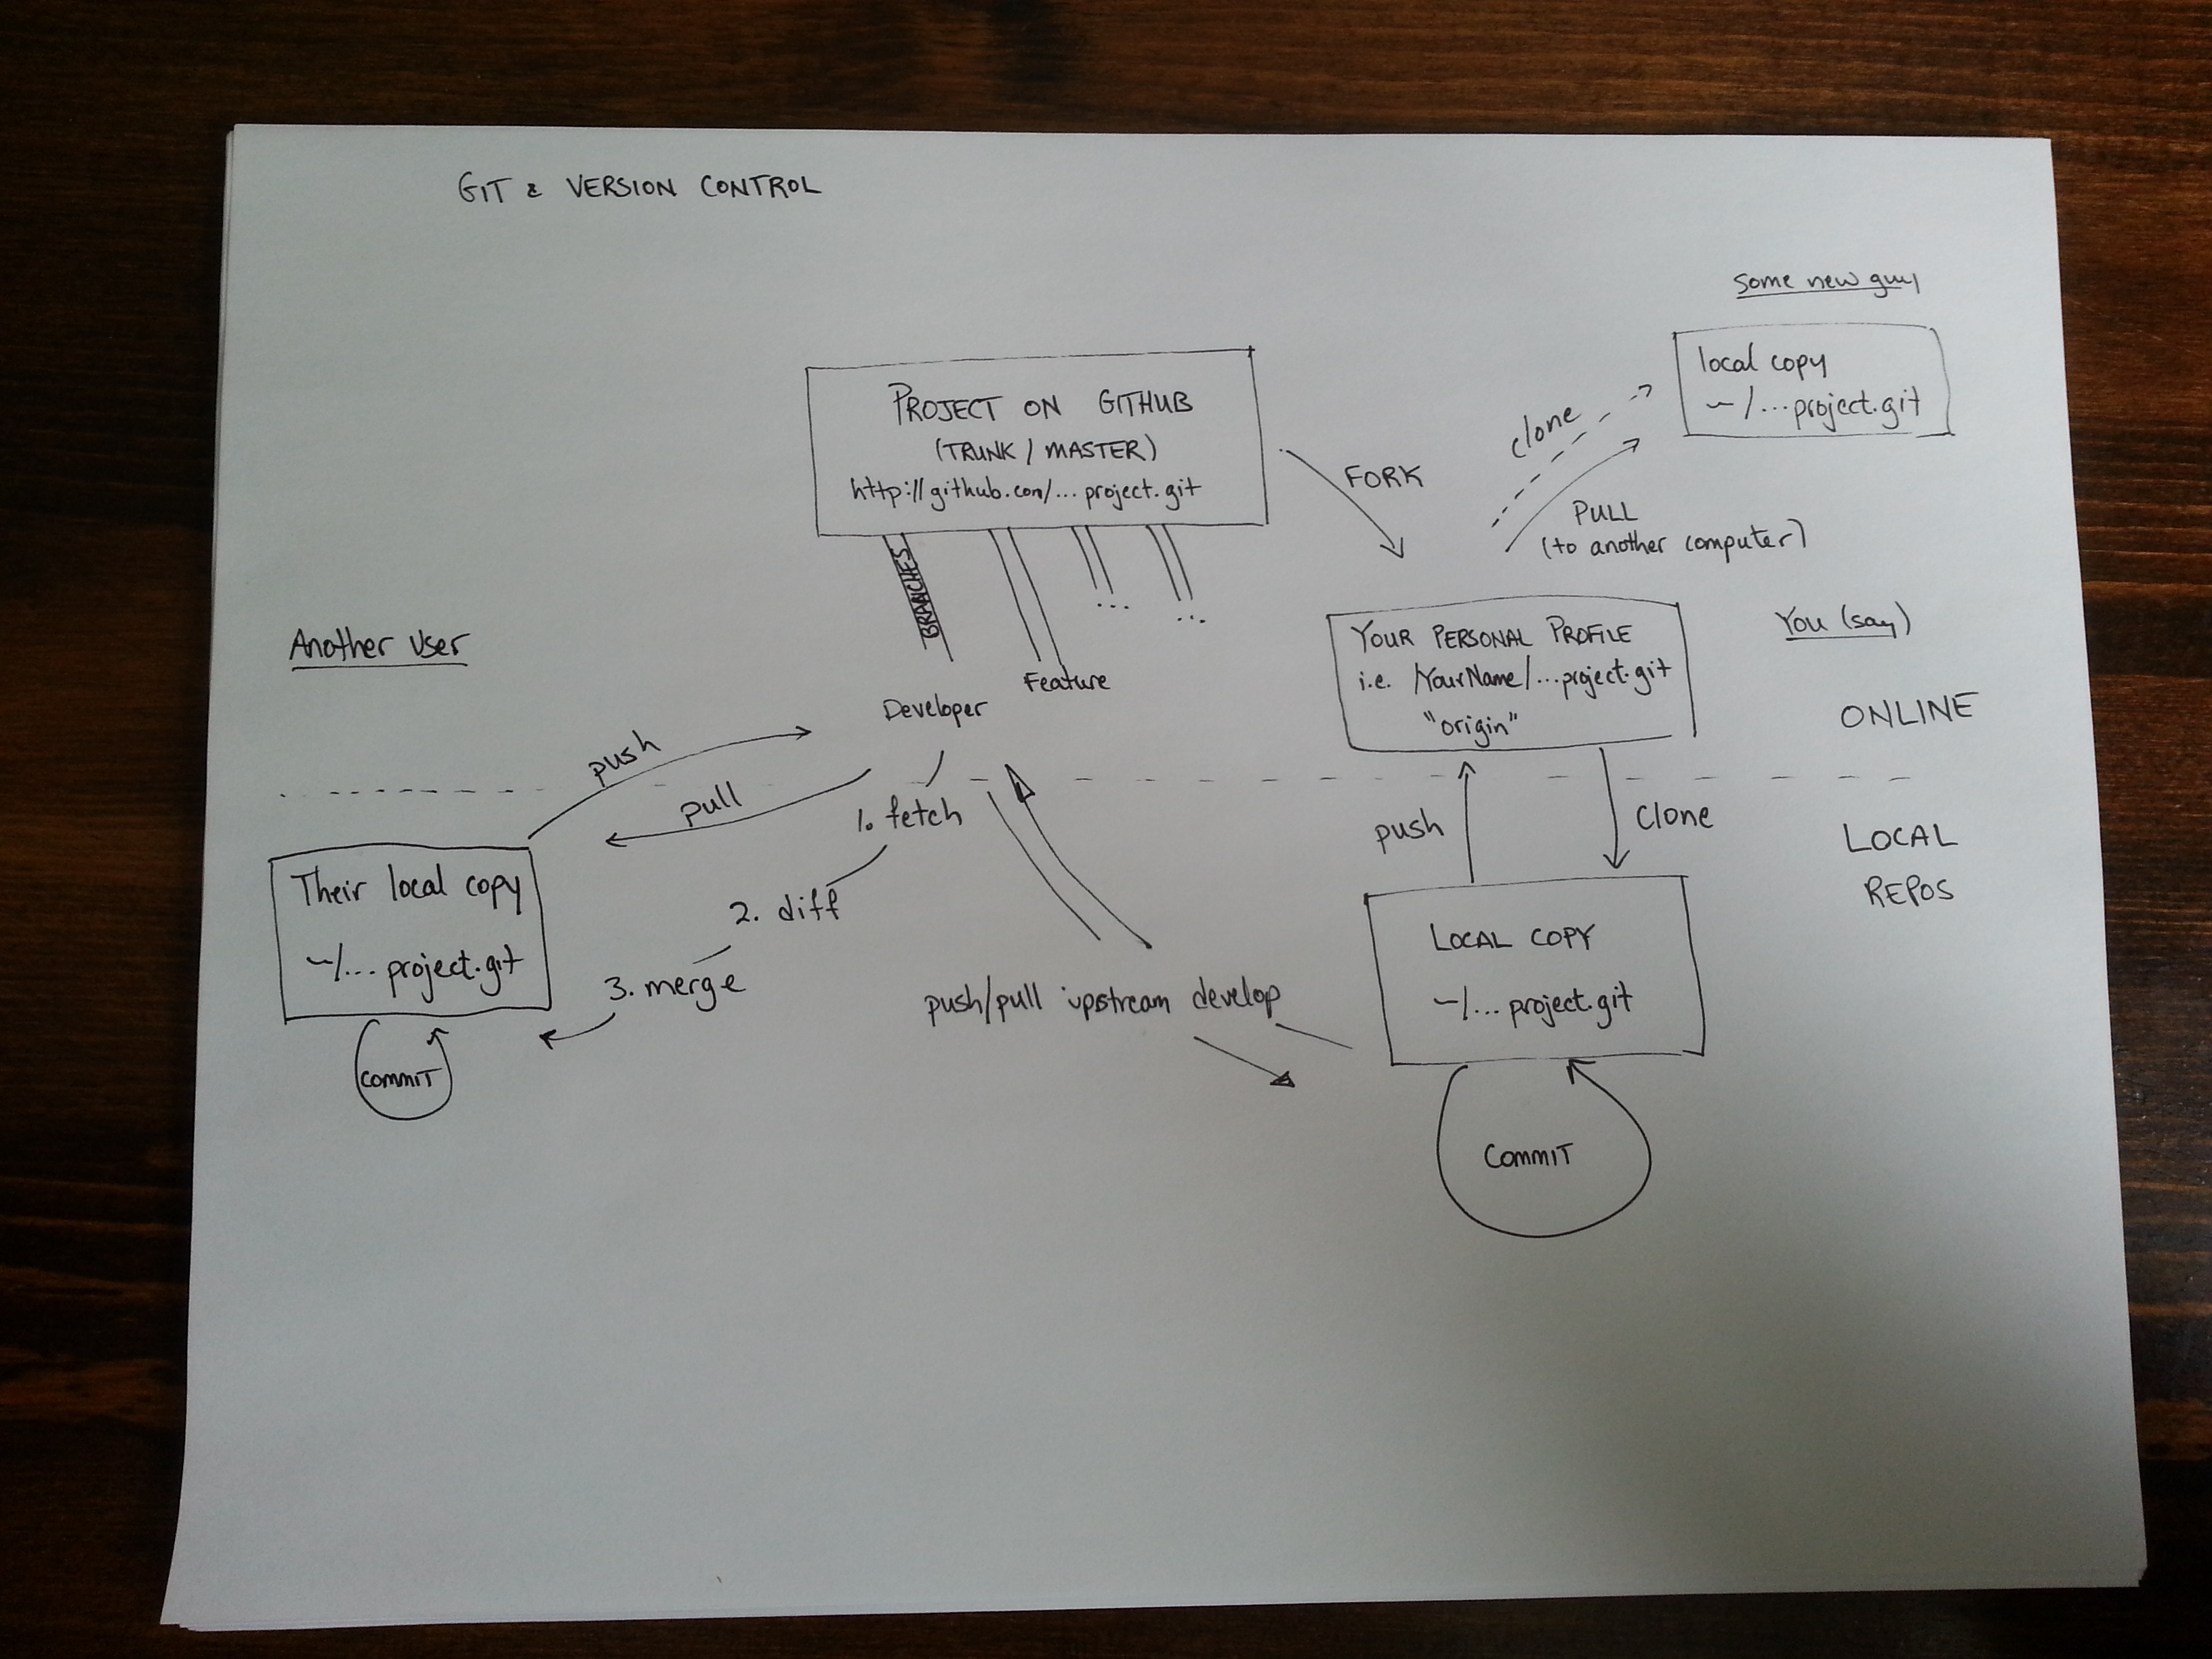 GIT & VERSION CONTROL
some new guy
local copy
~/...project.git
clone
PULL
(to another computer)
PROJECT ON GITHUB
(TRUNK / MASTER)
http://github.com/... project.git
FORK
BRANCHES
...
...
Feature
Developer
Another User
YOUR PERSONAL PROFILE
i.e. /YourName/...project.git
"origin"
You (say)
ONLINE
push
pull
1. fetch
2. diff
3. merge
Their local copy
~/... project.git
COMMIT
push/pull upstream develop
push
Clone
LOCAL
REPOS
LOCAL COPY
~/... project.git
COMMIT